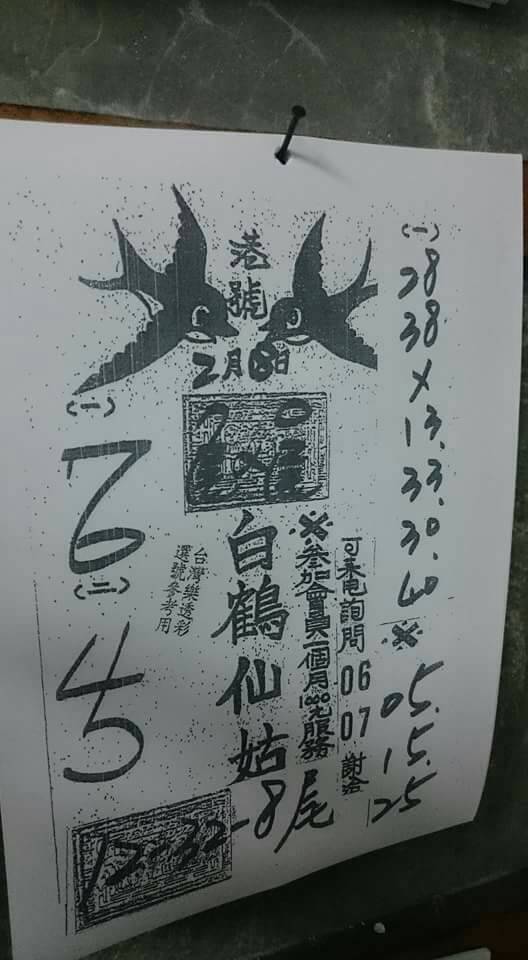 港號
2月 日
(一)
28
38
×
13.
33.
30.
40
※
05.
15.
25
可來电詢問 06 07 謝洽
※參加會員一個月1000元服務
白鶴仙姑
台灣樂透彩
選號參考用
(一)
6
(二)
45
12-32-8尾